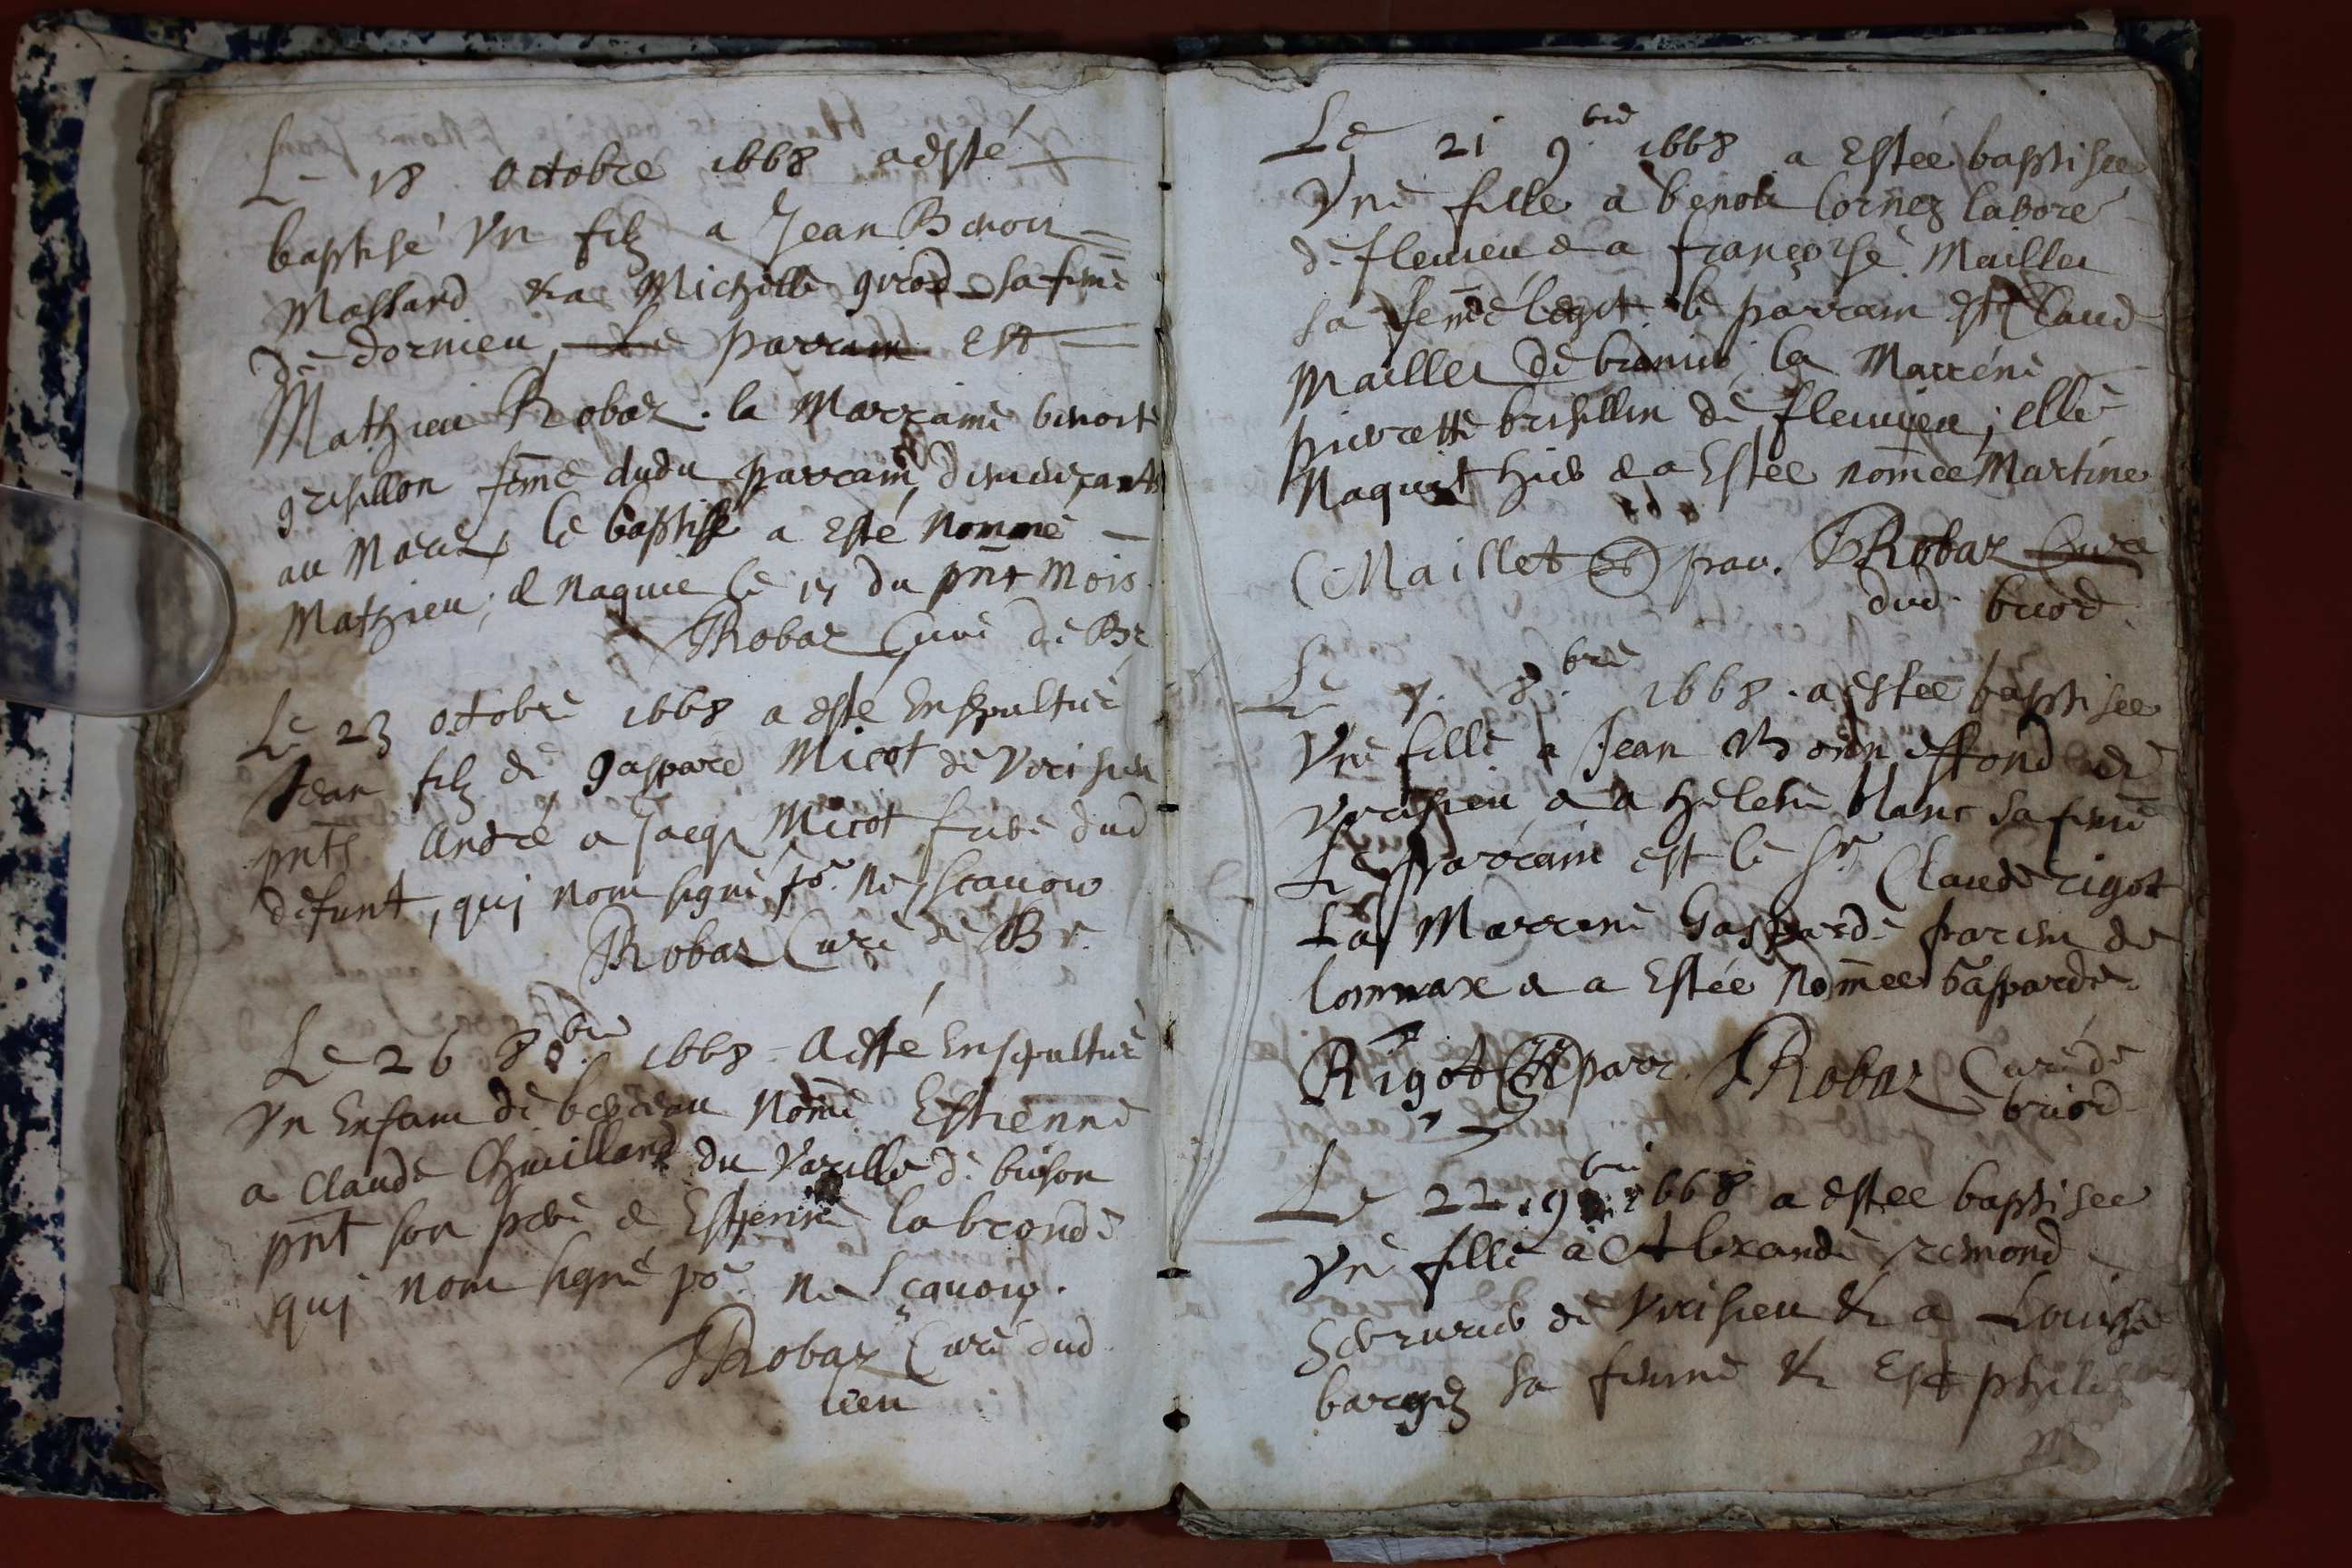 Le 18 octobre 1668 a esté
baptisé un filz a Jean Benoit
Massard & a Michelle girod sa fem̄e
de dornieu, Le parrain est
Mathieu Robaz. la Marraine benoite
grisillon fem̄e dudu parrain demeurants
au Marez le baptisé a esté nommé
Mathieu; & naquit le 17 du pn̄t mois
Robaz Curé de Br
Le 23 octobre 1668 a esté ensepulturé
Jean filz de gaspard Micot de Verisieu
pn̄ts André & Jacq Micot frere dud
defunt, quj nont signé po.r ne scavoir
Robaz Curé de Br.
Le 26 8.bre 1668 a esté ensepulturé
un Enfant de berceau nom̄é Estienne
a Claude Chuillard du de buison
pn̄t son pere & Estienne labronde
quj nont signé po.r ne sçavoir.
Robaz Curé dud
lieu
Le 21 9.bre 1668 a Estée baptisée
Une fille a benoit Cornez labore
de flevieu & a françoise Maillet
sa fem̄e legit. le parrain est Claude
Maillet de la Marréne
pierrette brisillon de flevieu; elle
Naquit hier & a Estée nom̄ée Martine
C Maillet par. Robaz Curé
dud. briord.
Le 7. 8.bre 1668. a estée baptisée
Une fille a Jean de
Verisieu & a helene blanc sa fem̄e
Le parrain est le Sr Claude rigot
La Marrene Gasparde de
& a Estée Nom̄ée Gasparde.
Rigot parr. Robaz Curé de
briord
Le 22. 9.bre 1668 a estée baptisée
Une fille à Alexandre remond
Serrurier de Verisieu & a Louise
bargez sa femme &